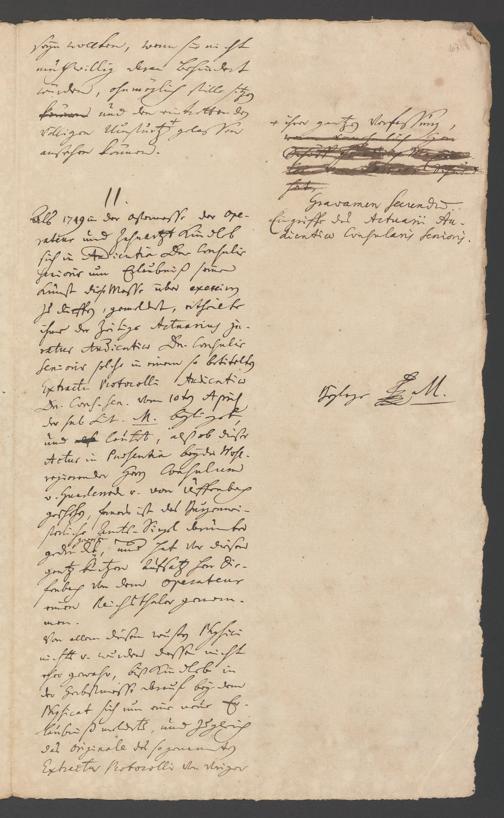 seyn wollten, wenn sie nicht
muthwillig daran behindert
würden, ohnmöglich stille sitzen
können und den
völligen Umsturtz gelassen
ansehen können.
11.
Als 1749 in der Ostermesse der Ope-
rateur und Zahnartzt Kindleb
sich in Audientia Dn. Consulis
Senioris um Erlaubniß seine
Kunst diese Messe über exerciren
zu dürffen, gemeldet, ertheilte
ihme der zeitige Actuarius ju-
ratus Audientiae Dn. Consulis
Senioris solche in einem so betitelten
Extractu Protocolli Audientiae
Dn. Cons. Sen. vom 10ten April
der sub Lit. M. beyliegt,
und lautet, als ob dieser
Actus in Praesentia beyder Wohl-
regierender Herren Consulum
v. und v. von Uffenbach
geschehen, ferner ist das Burgermei-
sterliche Amts-Siegel darunter
gedruckt, und hat vor diesen
gantz kurtzen Aufsatz Herr Die-
fenbach von dem Operateur
einen Reichsthaler genom-
men.
Von allem diesem wusten Physici
nichts u. wurden dessen nicht
eher gewahr, biß Kindleb in
der Herbstmesse darauf bey dem
Physicat sich um eine neue Er-
laubniß meldete, und zugleich
das Originale des sogenannten
Extractus Protocolli von voriger
+ ihre gantze Verfassung,
Gravamen Secundum.
Eingriffe des Actuarii Au-
dientiae Consularis Senioris.
Beylage Lit. M.